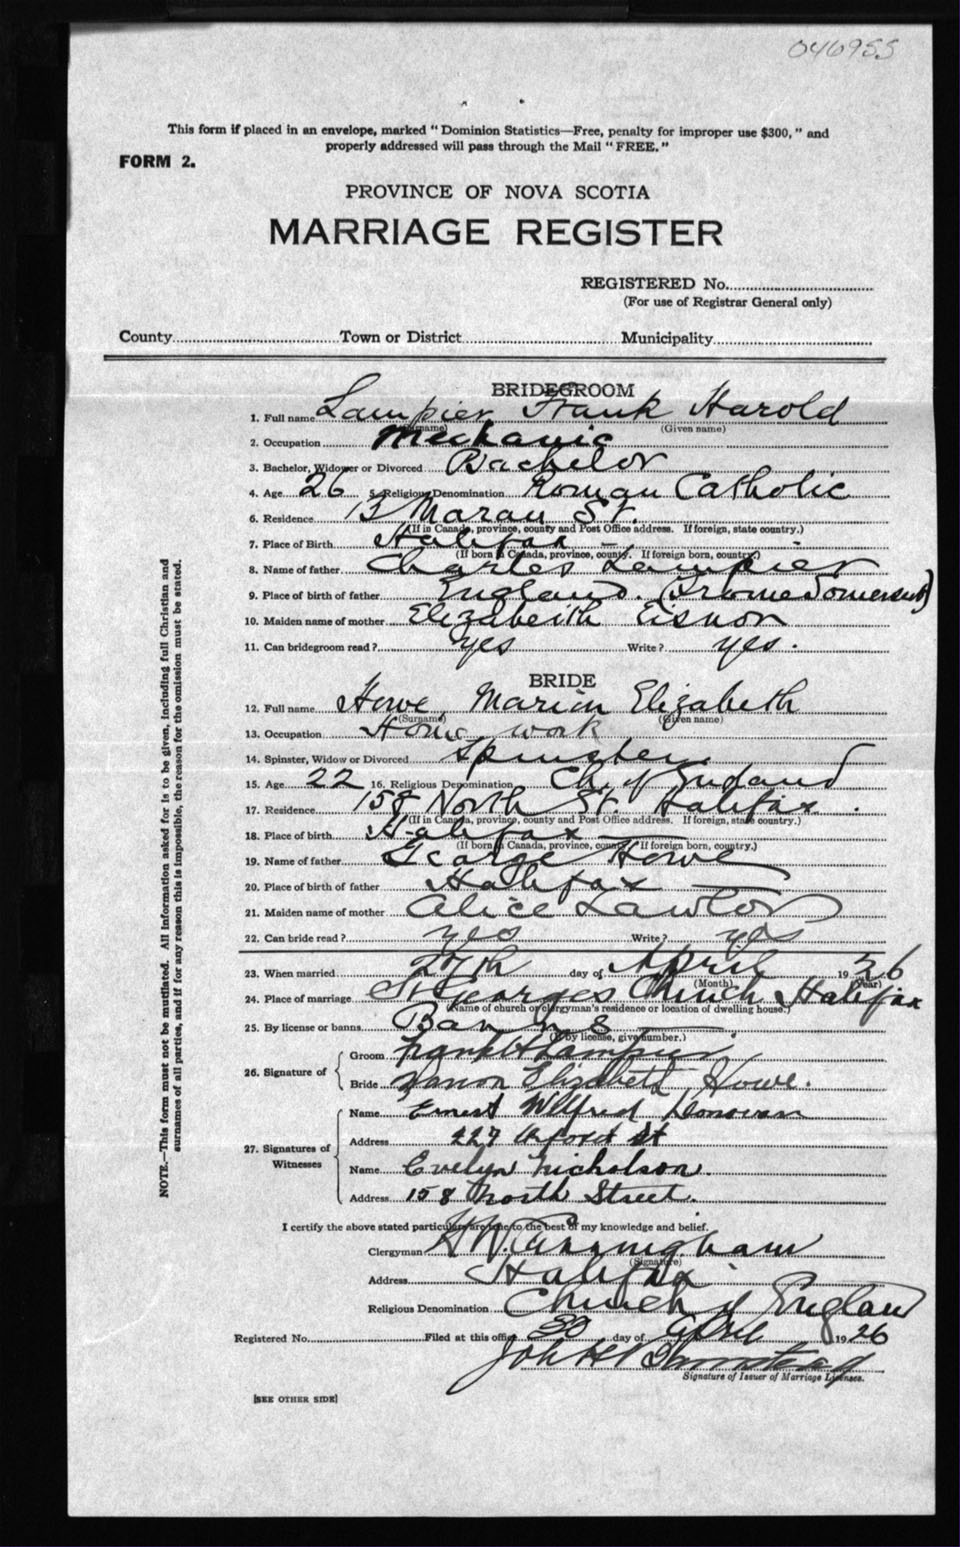 046955
This form if placed in an envelope, marked "Dominion Statistics—Free, penalty for improper use $300," and
properly addressed will pass through the Mail "FREE."
FORM 2.
PROVINCE OF NOVA SCOTIA
MARRIAGE REGISTER
REGISTERED No.
(For use of Registrar General only)
County Town or District Municipality
BRIDEGROOM
1. Full name Lampier Frank Harold
(Surname) (Given name)
2. Occupation Mechanic
3. Bachelor, Widower or Divorced Bachelor
4. Age 26 5. Religious Denomination Roman Catholic
6. Residence 13 Maran St.
(If in Canada, province, county and Post Office address. If foreign, state country.)
7. Place of Birth Halifax
(If born in Canada, province, county. If foreign born, country.)
8. Name of father Charles Lampier
9. Place of birth of father England. (Frome Somerset)
10. Maiden name of mother Elizabeith Eisnor
11. Can bridegroom read? yes Write? yes.
BRIDE
12. Full name Howe Marion Elizabeth
(Surname) (Given name)
13. Occupation Home work
14. Spinster, Widow or Divorced Spinster
15. Age 22 16. Religious Denomination Ch. of England
17. Residence 158 North St. Halifax.
(If in Canada, province, county and Post Office address. If foreign, state country.)
18. Place of birth Halifax
(If born in Canada, province, county. If foreign born, country.)
19. Name of father George Howe
20. Place of birth of father Halifax
21. Maiden name of mother Alice Lawlor
22. Can bride read? yes Write? yes
23. When married 27th day of April 1926
(Month) (Year)
24. Place of marriage St Georges Church Halifax
(Name of church or clergyman's residence or location of dwelling house.)
25. By license or banns Banns
(If by license, give number.)
26. Signature of
Groom Frank H Lampier
Bride Marion Elizabeth Howe.
27. Signatures of Witnesses
Name Ernest Wilfred Donovan
Address 227 Oxford St
Name Evelyn Nicholson.
Address 158 North Street.
I certify the above stated particulars are true to the best of my knowledge and belief.
Clergyman H W Cunningham
(Signature)
Address Halifax
Religious Denomination Church of England
Registered No. Filed at this office 30 day of April 1926
John H
Signature of Issuer of Marriage Licenses.
[SEE OTHER SIDE]
NOTE.—This form must not be mutilated. All information asked for is to be given, including full Christian and
surnames of all parties, and if for any reason this is impossible, the reason for the omission must be stated.